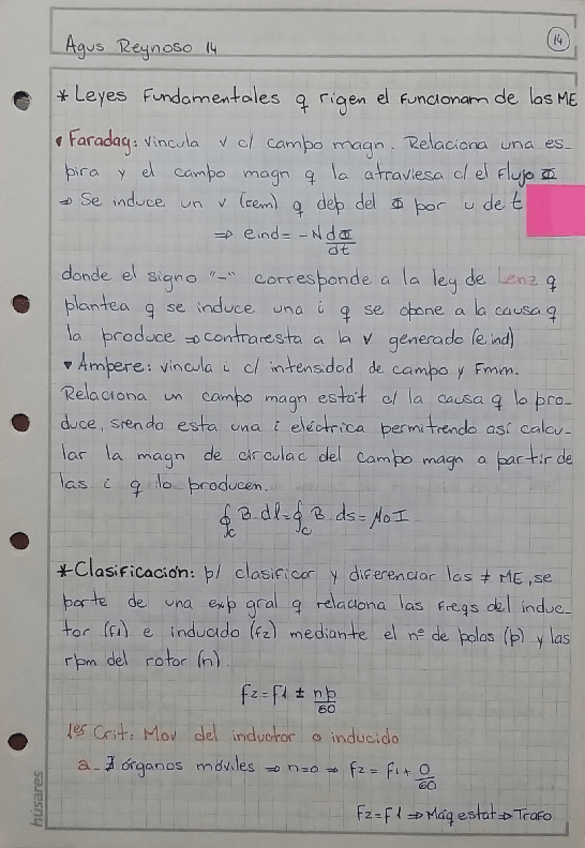 Agus Reynoso 14
14
* Leyes Fundamentales q rigen el funcionam de las ME
• Faraday: vincula v c/ campo magn. Relaciona una es-
pira y el campo magn q la atraviesa c/ el Flujo Φ
⇒ Se induce un v (fem) q dep del Φ por u de t
⇒ eind = -N dΦ/dt
donde el signo "-" corresponde a la ley de Lenz q
plantea q se induce una i q se opone a la causa q
la produce ⇒ contraresta a la v generado (eind)
• Ampere: vincula i c/ intensidad de campo y Fmm.
Relaciona un campo magn estát c/ la causa q lo pro-
duce, siendo esta una i eléctrica permitiendo así calcu-
lar la magn de circulac del campo magn a partir de
las i q lo producen.
∮c B. dl = ∮c B. ds = μ0 I
* Clasificación: p/ clasificar y diferenciar las ≠ ME, se
parte de una exp gral q relaciona las freqs del induc-
tor (f1) e inducido (f2) mediante el nº de polos (p) y las
rpm del rotor (n).
f2 = f1 ± np/60
1er Crit: Mov del inductor o inducido
a- ∄ órganos móviles ⇒ n=0 ⇒ f2 = f1 + 0/60
f2 = f1 ⇒ Máq estat ⇒ Trafo
húsares